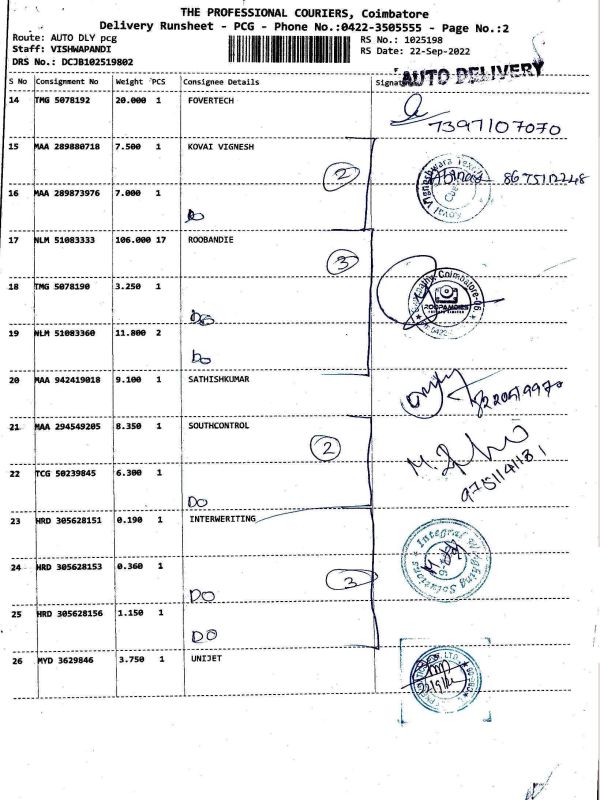 THE PROFESSIONAL COURIERS, Coimbatore
Delivery Runsheet - PCG - Phone No.:0422-3505555 - Page No.:2
Route: AUTO DLY pcg
RS No.: 1025198
Staff: VISHWAPANDI
RS Date: 22-Sep-2022
DRS No.: DCJB102519802
AUTO DELIVERY
S No Consignment No Weight PCS Consignee Details Signat
14 TMG 5078192 20.000 1 FOVERTECH
7397107070
15 MAA 289880718 7.500 1 KOVAI VIGNESH
2
8675112248
16 MAA 289873976 7.000 1
Do
17 NLM 51083333 106.000 17 ROOBANDIE
3
18 TMG 5078190 3.250 1
Do
19 NLM 51083360 11.800 2
Do
20 MAA 942419018 9.100 1 SATHISHKUMAR
21 MAA 294549205 8.350 1 SOUTHCONTROL
2
22 TCG 50239845 6.300 1
DO
23 HRD 305628151 0.190 1 INTERWERITING
Integral Weighing Solutions
24 HRD 305628153 0.360 1
3
DO
25 HRD 305628156 1.150 1
DO
26 MYD 3629846 3.750 1 UNIJET